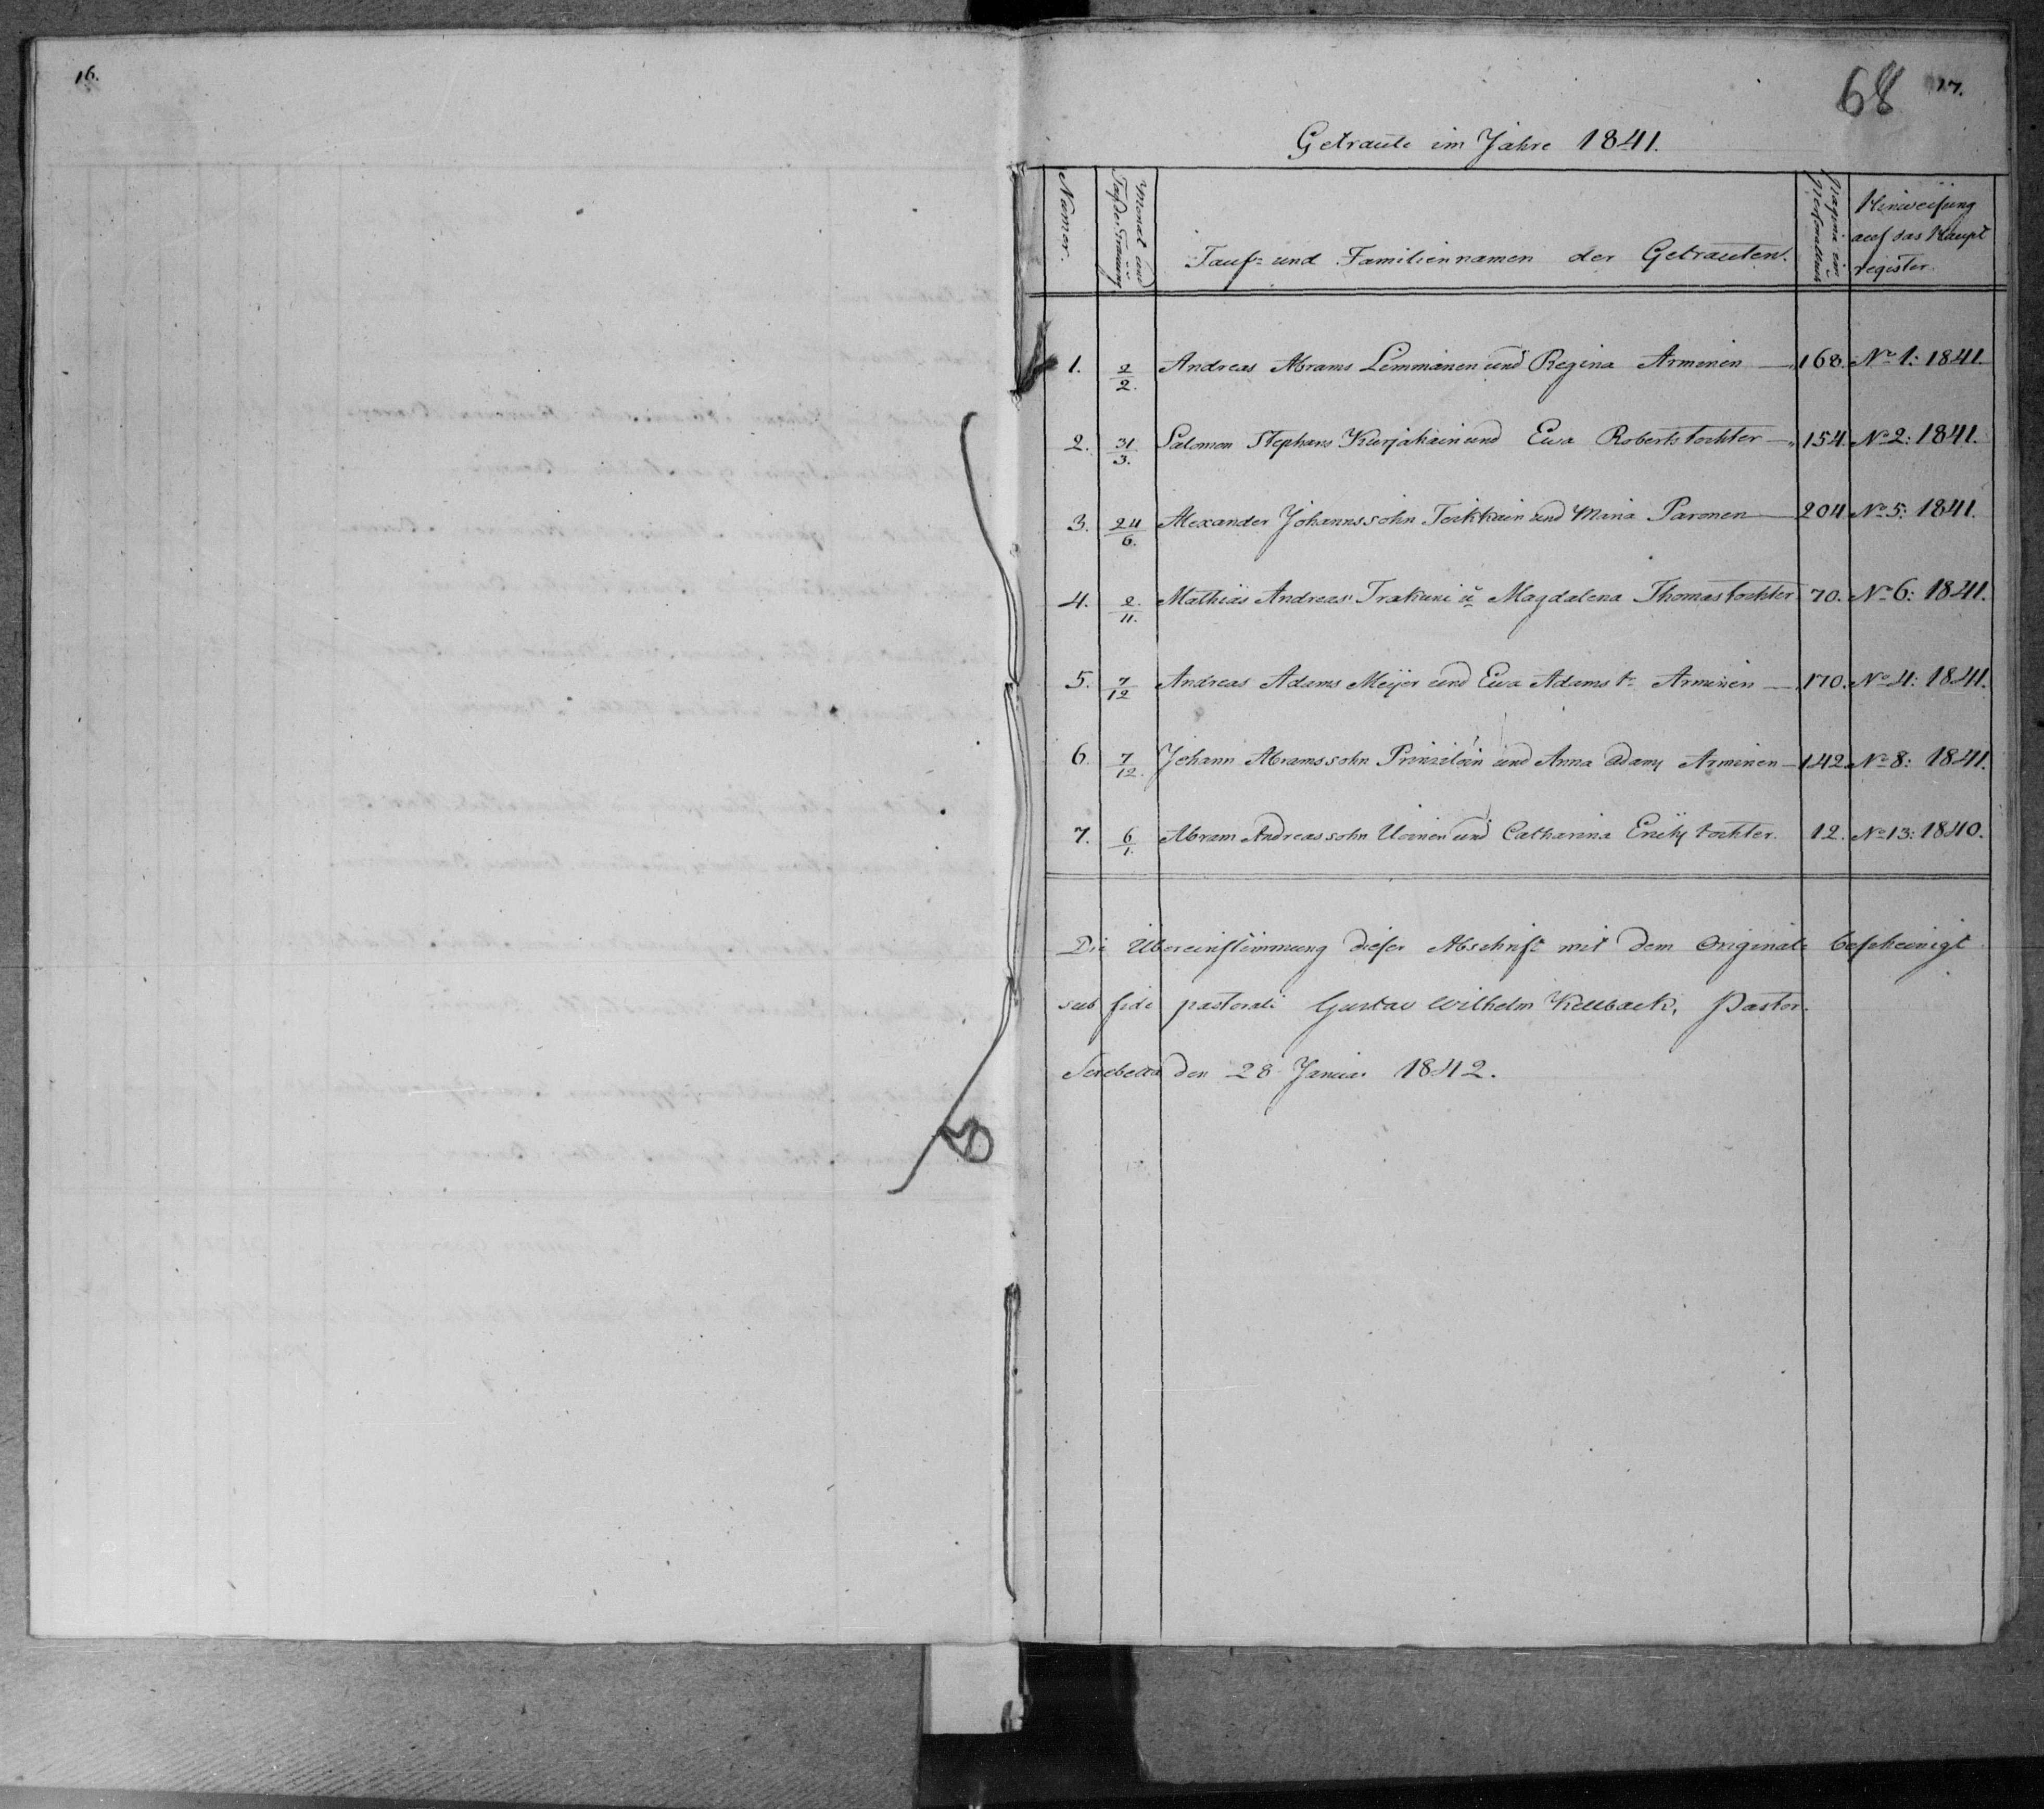 16.
68 17.
Getraute im Jahre 1841.
Numer.
Monat und
Tag der Trauung.
Tauf= und Familiennamen der Getrauten.
Pagina im
Personalbuch
Hinweisung
auf das Haupt
register.
1. 2/2. Andreas Abrams Lemmänen und Regina Arminen — 168. No 1: 1841.
2. 31/3. Salomon Stephans Kurjahain und Ewa Robertstochter — 154. No 2: 1841.
3. 24/6. Alexander Johannssohn Teikkain und Maria Paronen — 204 No 5: 1841.
4. 2./11. Mathias Andreas Trakuni u Magdalena Thomastochter 70. No 6: 1841.
5. 7/12 Andreas Adams Meijer und Ewa Adams t. Arminen — 170. No 4: 1841.
6. 7/12. Johann Abramssohn und Anna Adams Arminen — 142 No 8: 1841.
7. 6/1. Abram Andreassohn Uoinen und Catharina tochter. 12. No 13: 1840.
Die Übereinstimmung dieser Abschrift mit dem Originale bescheinigt
sub fide pastorali Gustav Wilhelm Pastor.
den 28 Januar 1842.